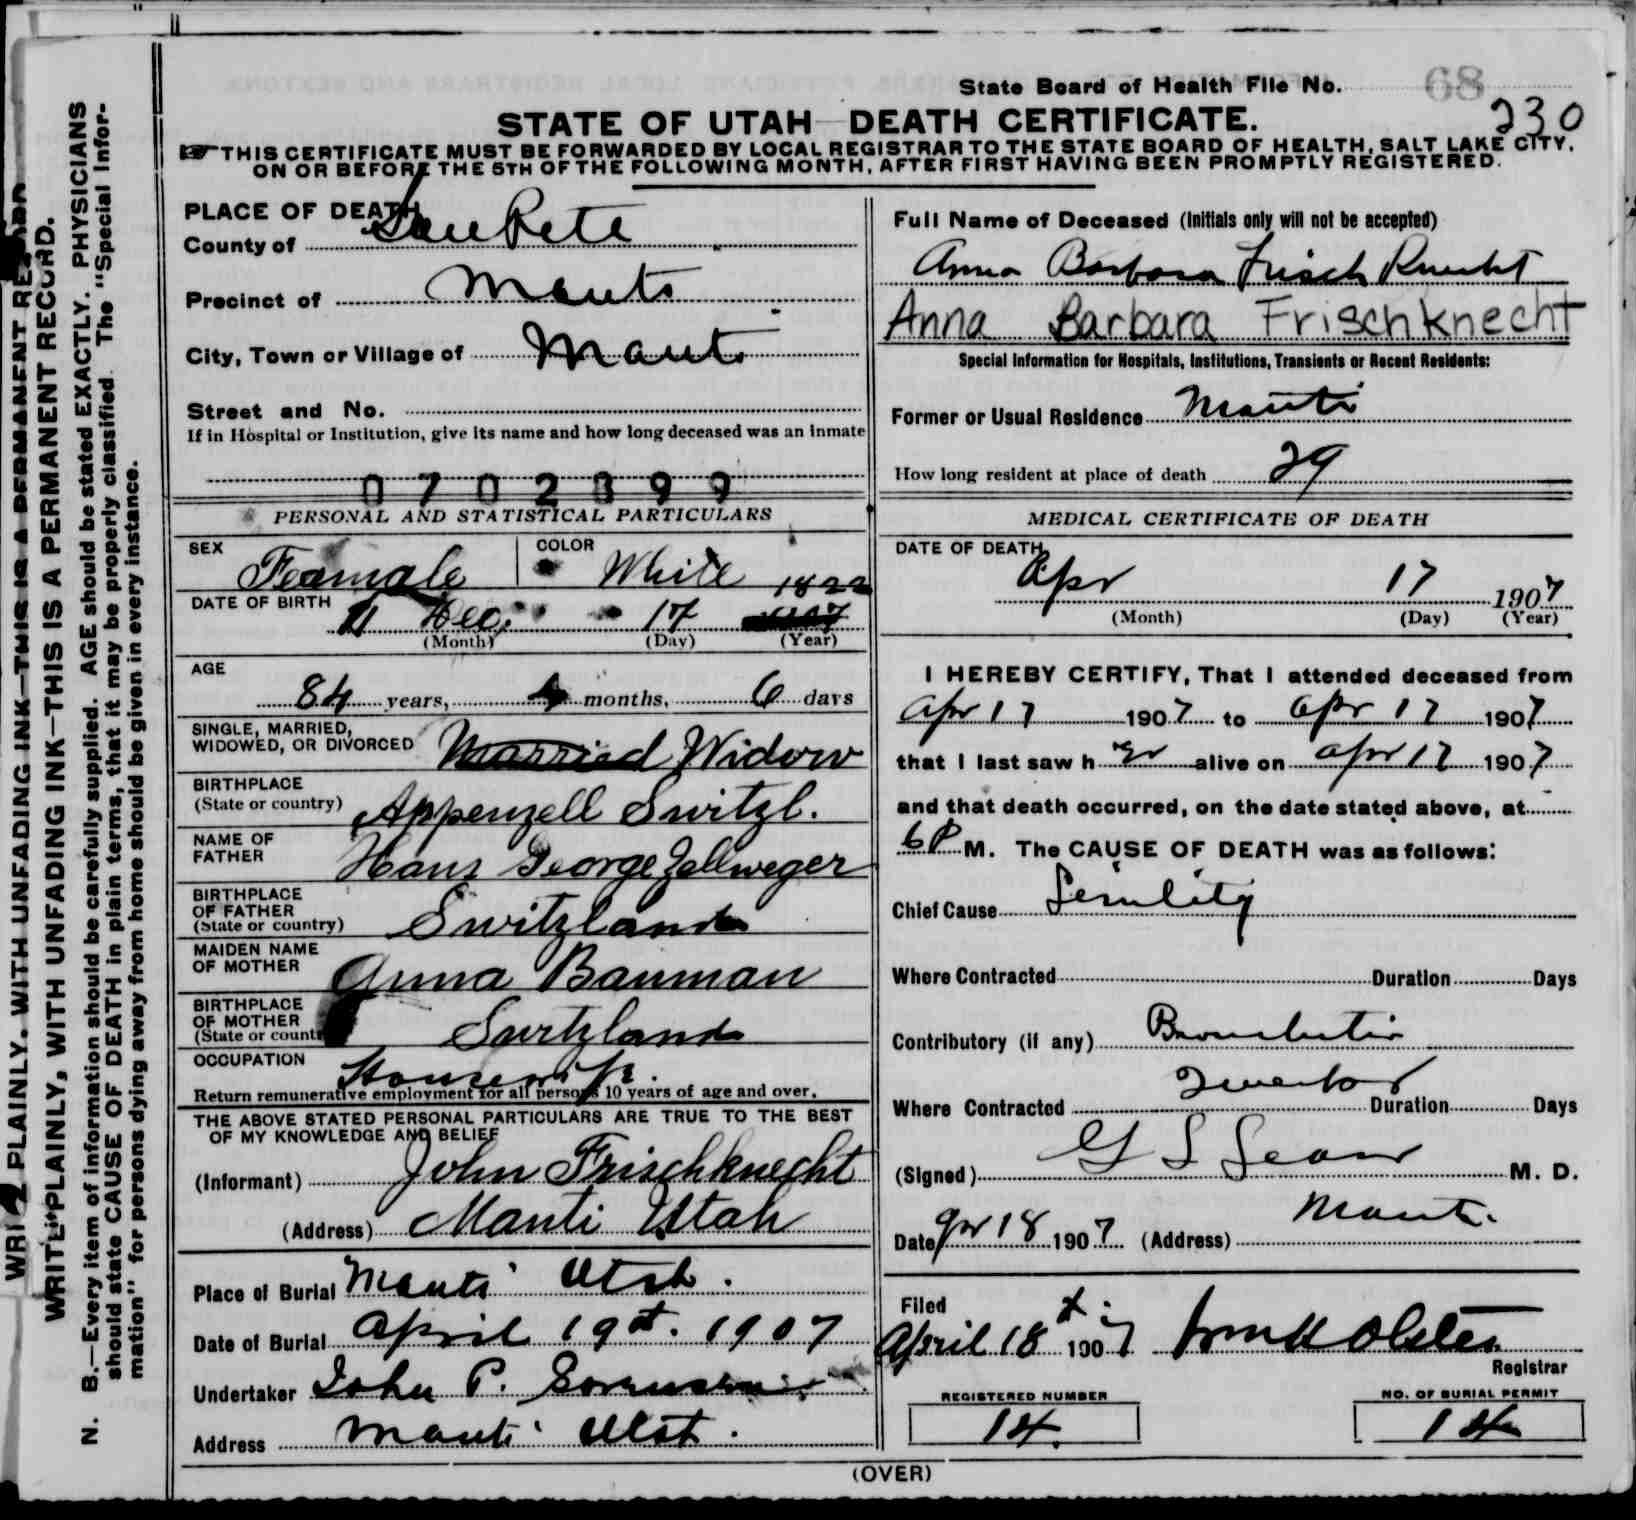 State Board of Health File No. 68
230
STATE OF UTAH—DEATH CERTIFICATE.
THIS CERTIFICATE MUST BE FORWARDED BY LOCAL REGISTRAR TO THE STATE BOARD OF HEALTH, SALT LAKE CITY,
ON OR BEFORE THE 5TH OF THE FOLLOWING MONTH, AFTER FIRST HAVING BEEN PROMPTLY REGISTERED.
WRITE PLAINLY, WITH UNFADING INK—THIS IS A PERMANENT RECORD.
N. B.—Every item of information should be carefully supplied. AGE should be stated EXACTLY. PHYSICIANS
should state CAUSE OF DEATH in plain terms, that it may be properly classified. The "Special Infor-
mation" for persons dying away from home should be given in every instance.
PLACE OF DEATH
County of SanPete
Precinct of Manti
City, Town or Village of Manti
Street and No.
If in Hospital or Institution, give its name and how long deceased was an inmate
0702399
PERSONAL AND STATISTICAL PARTICULARS
SEX Feamale COLOR White
DATE OF BIRTH 11 Dec. 17 1822
(Month) (Day) (Year)
AGE
84 years, 4 months, 6 days
SINGLE, MARRIED,
WIDOWED, OR DIVORCED Married Widow
BIRTHPLACE
(State or country) Appenzell Switzl.
NAME OF
FATHER Hans George Zellweger
BIRTHPLACE
OF FATHER
(State or country) Switzland
MAIDEN NAME
OF MOTHER Anna Bauman
BIRTHPLACE
OF MOTHER
(State or country) Switzland
OCCUPATION Housewife.
Return remunerative employment for all persons 10 years of age and over.
THE ABOVE STATED PERSONAL PARTICULARS ARE TRUE TO THE BEST
OF MY KNOWLEDGE AND BELIEF
(Informant) John Frischknecht
(Address) Manti Utah
Place of Burial Manti Utah.
Date of Burial April 19th. 1907
Undertaker John P. Sorensen
Address Manti Utah.
Full Name of Deceased (Initials only will not be accepted)
Anna Barbara Frisch Knecht
Anna Barbara Frischknecht
Special Information for Hospitals, Institutions, Transients or Recent Residents:
Former or Usual Residence Manti
How long resident at place of death 29
MEDICAL CERTIFICATE OF DEATH
DATE OF DEATH
Apr 17 1907
(Month) (Day) (Year)
I HEREBY CERTIFY, That I attended deceased from
Apr 17 1907 to Apr 17 1907
that I last saw her alive on Apr 17 1907
and that death occurred, on the date stated above, at
6 P M. The CAUSE OF DEATH was as follows:
Chief Cause Senility
Where Contracted Duration Days
Contributory (if any) Bronchitis
Where Contracted Duration Days
(Signed) G L Sears M. D.
Date Apr 18 1907 (Address) Manti.
Filed
April 18th 1907
Registrar
REGISTERED NUMBER
14
NO. OF BURIAL PERMIT
14
(OVER)